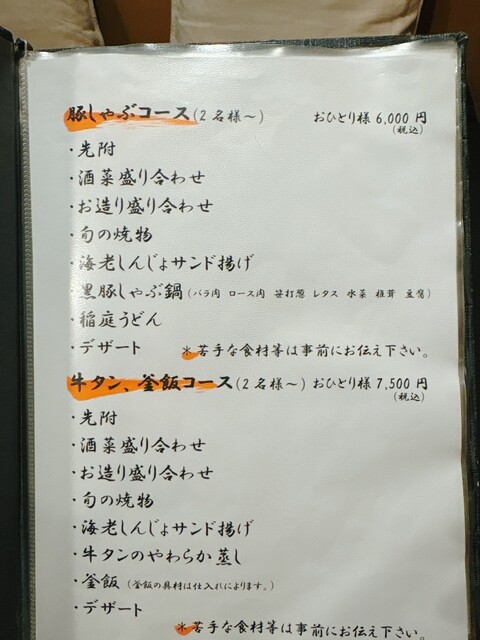 豚しゃぶコース(2名様～) おひとり様 6,000 円
(税込)
・先附
・酒菜盛り合わせ
・お造り盛り合わせ
・旬の焼物
・海老しんじょサンド揚げ
・黒豚しゃぶ鍋(バラ肉 ロース肉 笹打葱 レタス 水菜 椎茸 豆腐)
・稲庭うどん
・デザート ＊苦手な食材等は事前にお伝え下さい。
牛タン、釜飯コース(2名様～) おひとり様 7,500 円
(税込)
・先附
・酒菜盛り合わせ
・お造り盛り合わせ
・旬の焼物
・海老しんじょサンド揚げ
・牛タンのやわらか蒸し
・釜飯(釜飯の具材は仕入れによります。)
・デザート
＊苦手な食材等は事前にお伝え下さい。